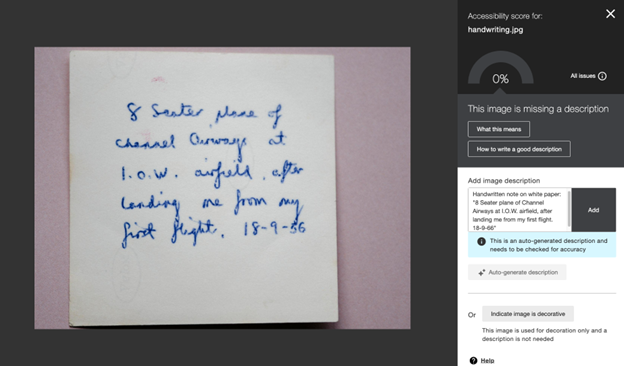 8 Seater plane of
Channel Airways at
I.O.W. airfield, after
landing me from my
first flight. 18-9-56
Accessibility score for:
handwriting.jpg
0%
All issues
This image is missing a description
What this means
How to write a good description
Add image description
Handwritten note on white paper:
"8 Seater plane of Channel
Airways at I.O.W. airfield, after
landing me from my first flight.
18-9-66"
Add
This is an auto-generated description and
needs to be checked for accuracy
Auto-generate description
Or
Indicate image is decorative
This image is used for decoration only and a
description is not needed
Help